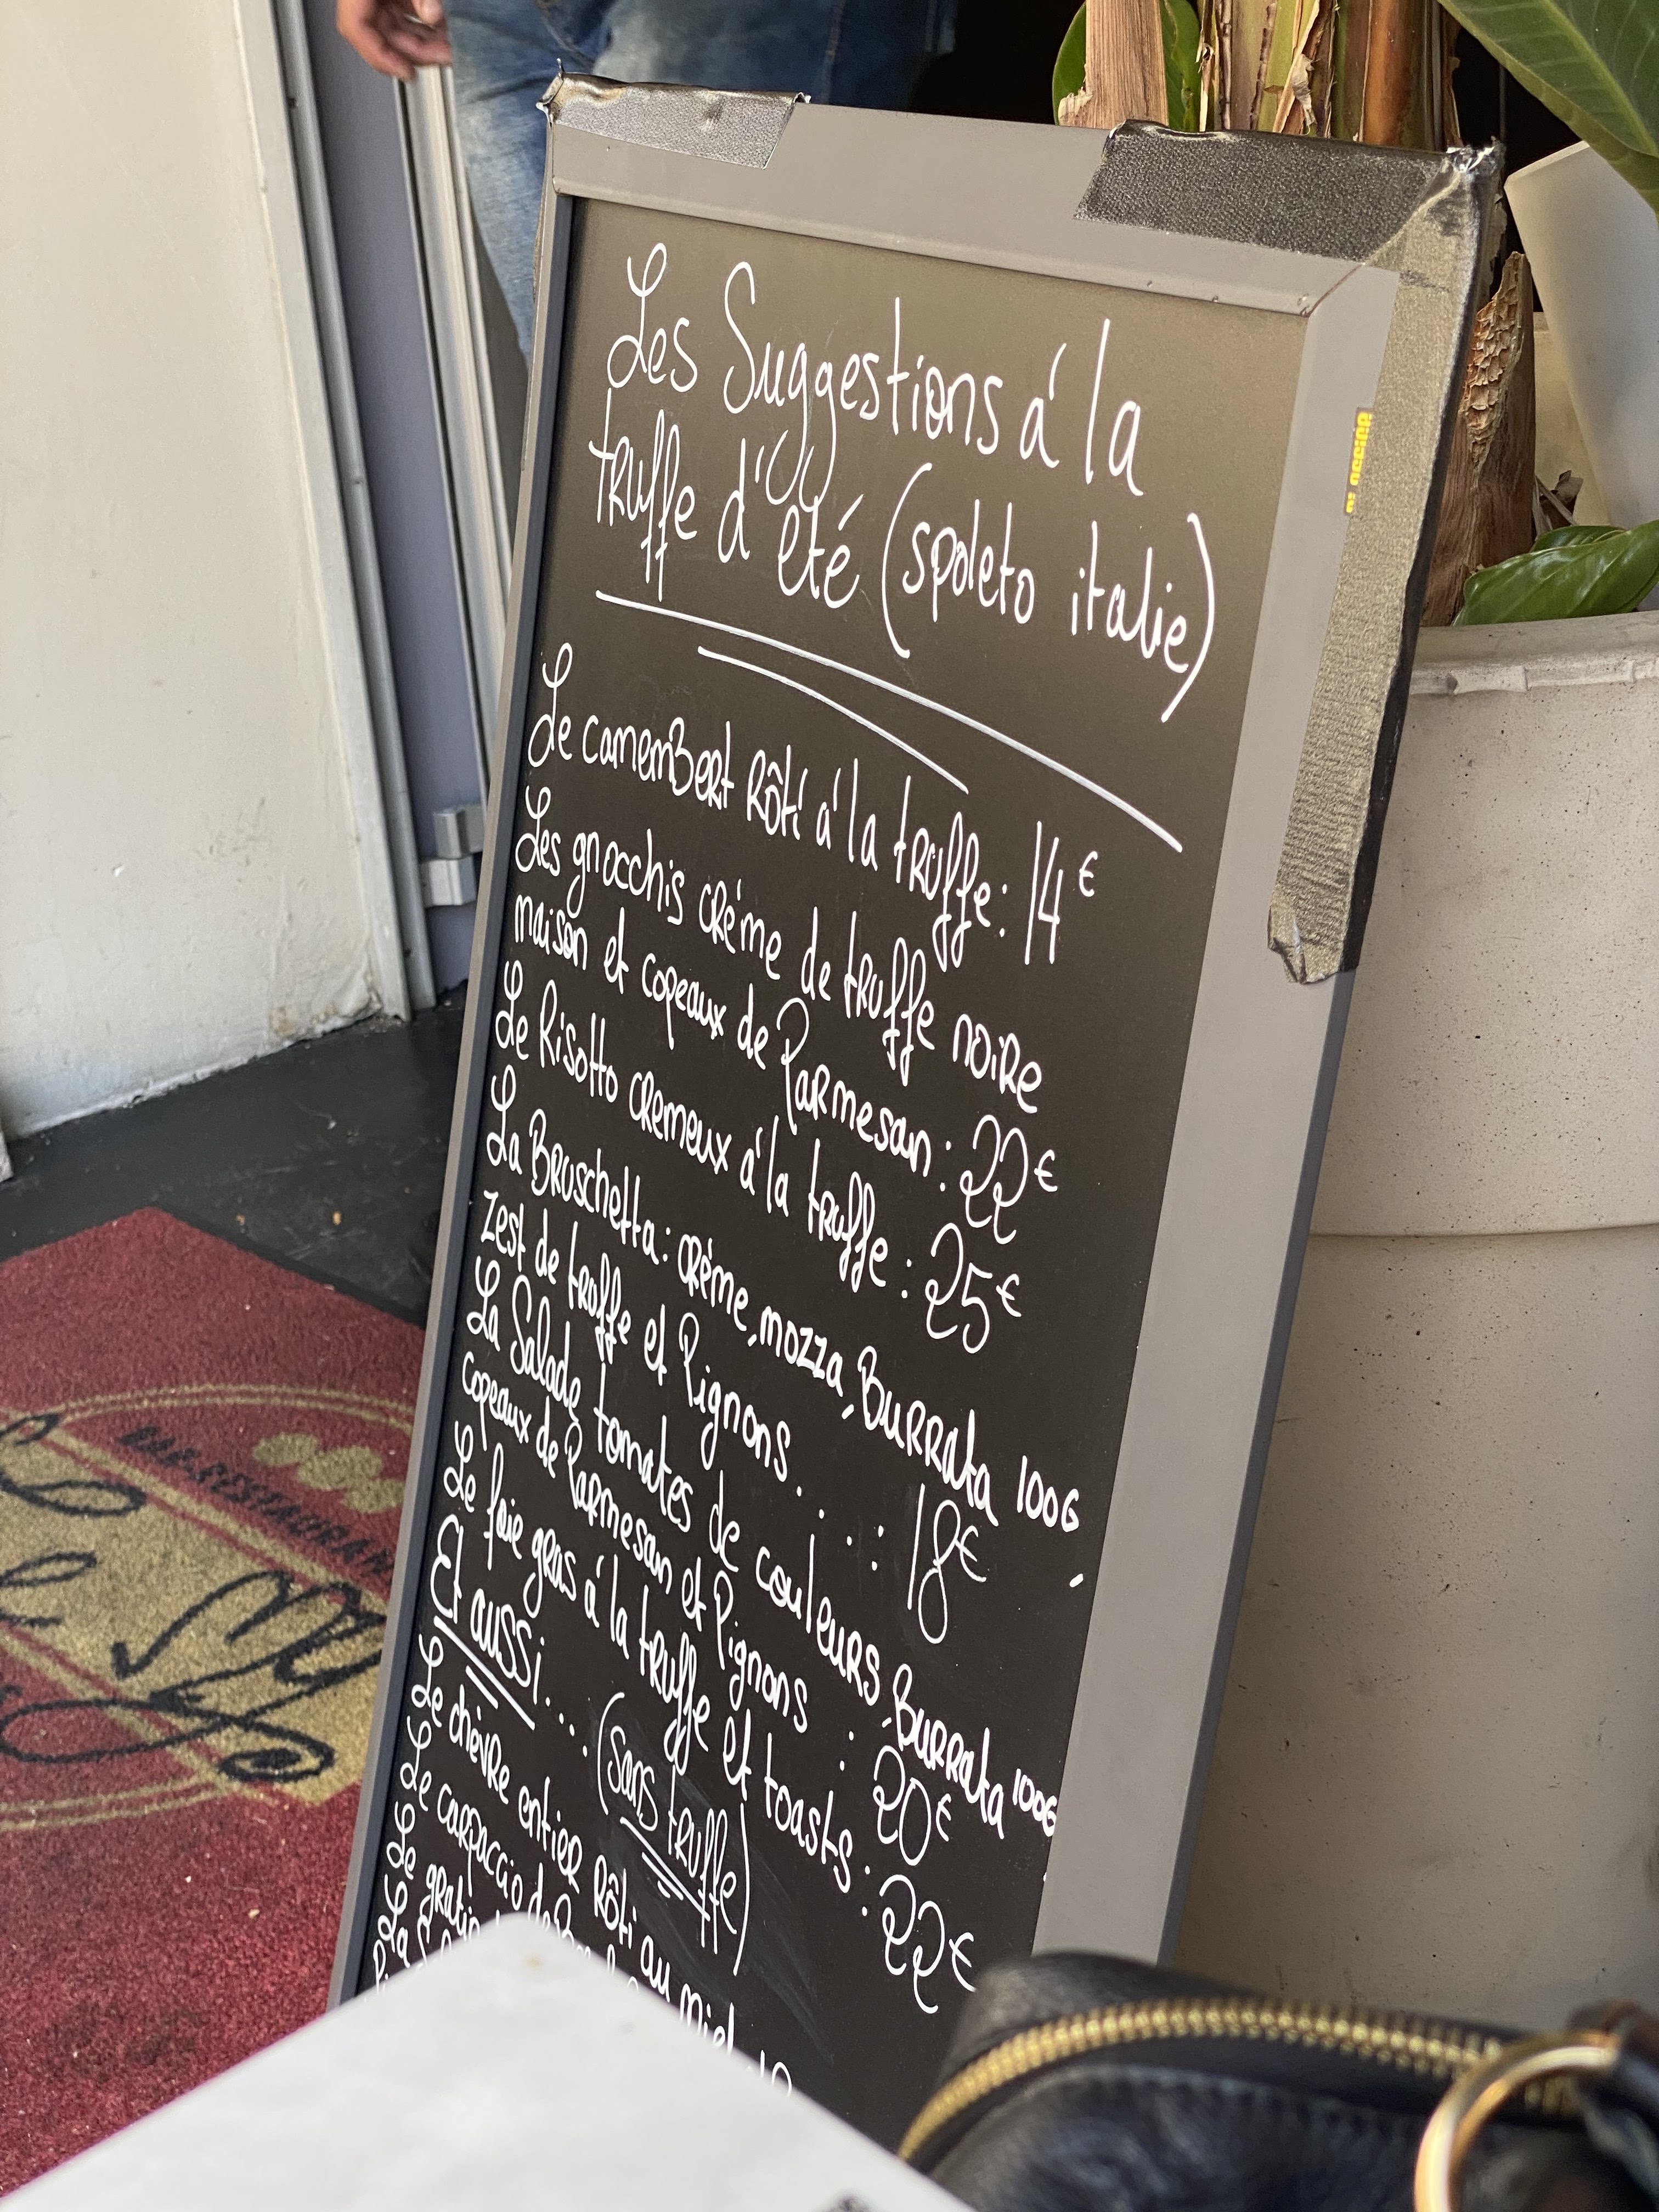 Les Suggestions á la
truffe d'été (spoleto italie)
Le camemBert Rôti á la truffe: 14€
Les gnocchis crème de truffe noire
maison et copeaux de Parmesan: 22€
Le Risotto cremeux á la truffe: 25€
La Bruschetta: crème, mozza, Burrata 100G
Zest de truffe et Pignons....: 18€
La Salade tomates de couleurs, Burrata 100G
Copeaux de Parmesan et Pignons : 20€
Le foie gras á la truffe et toasts: 22€
Et aussi... (sans truffe)
Le chèvre entier Rôti au miel
Le carpaccio de
Le
La
BAR-RESTAURANT